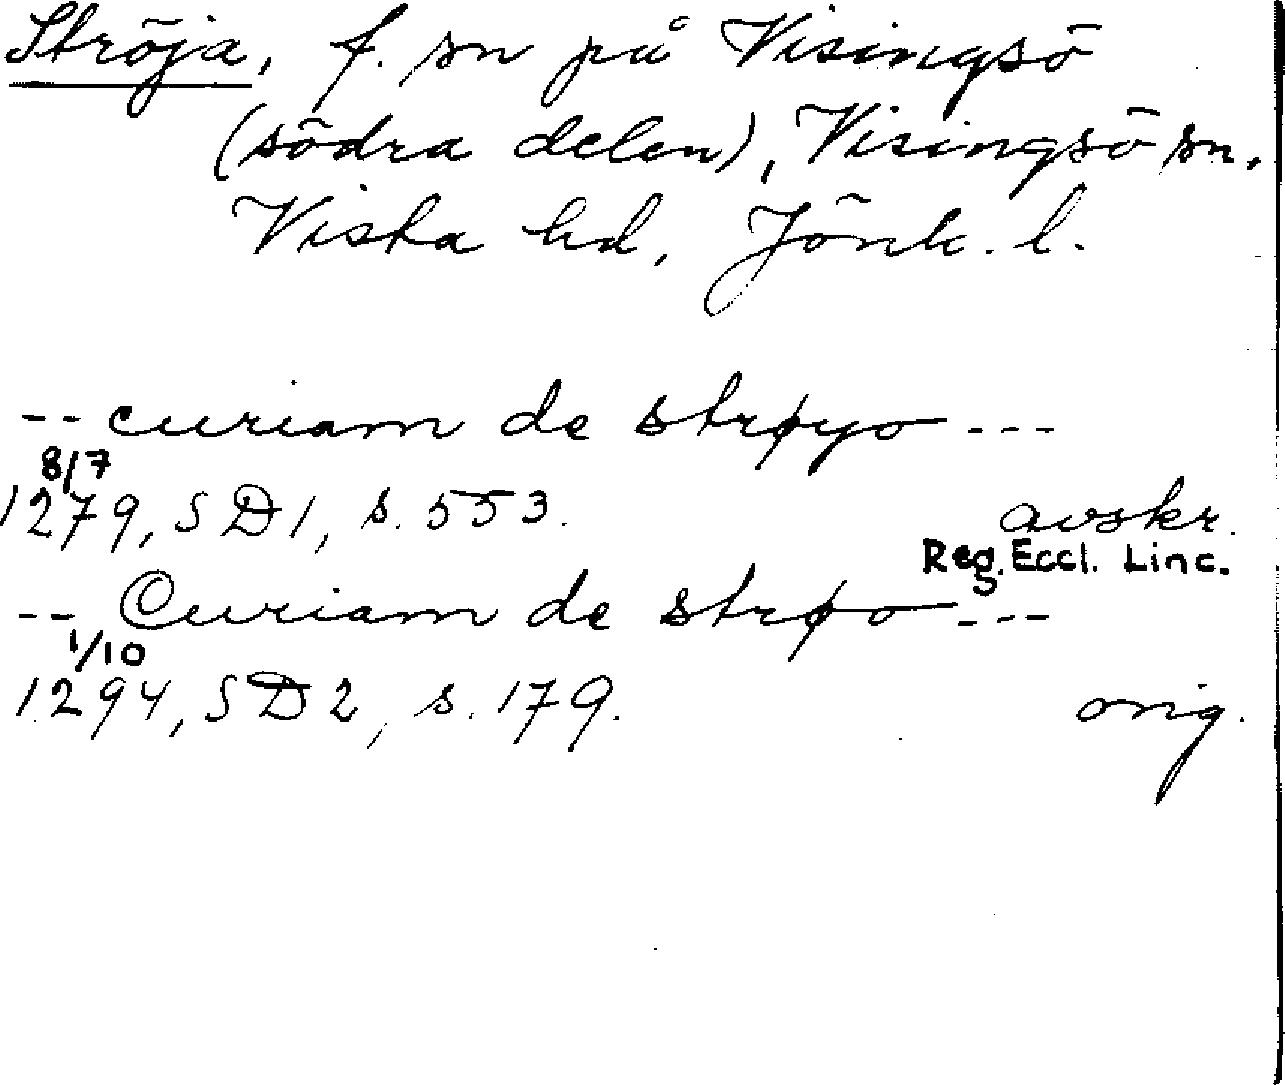 Ströja, f. sn på Visingsö
(södra delen), Visingsö sn.
Vista hd, Jönk. l.
-- curiam de strøyo ---
8/7
1279, SD1, s. 553. avskr.
Reg. Eccl. Linc.
-- Curiam de strøo ---
1/10
1294, SD2, s. 179. orig.